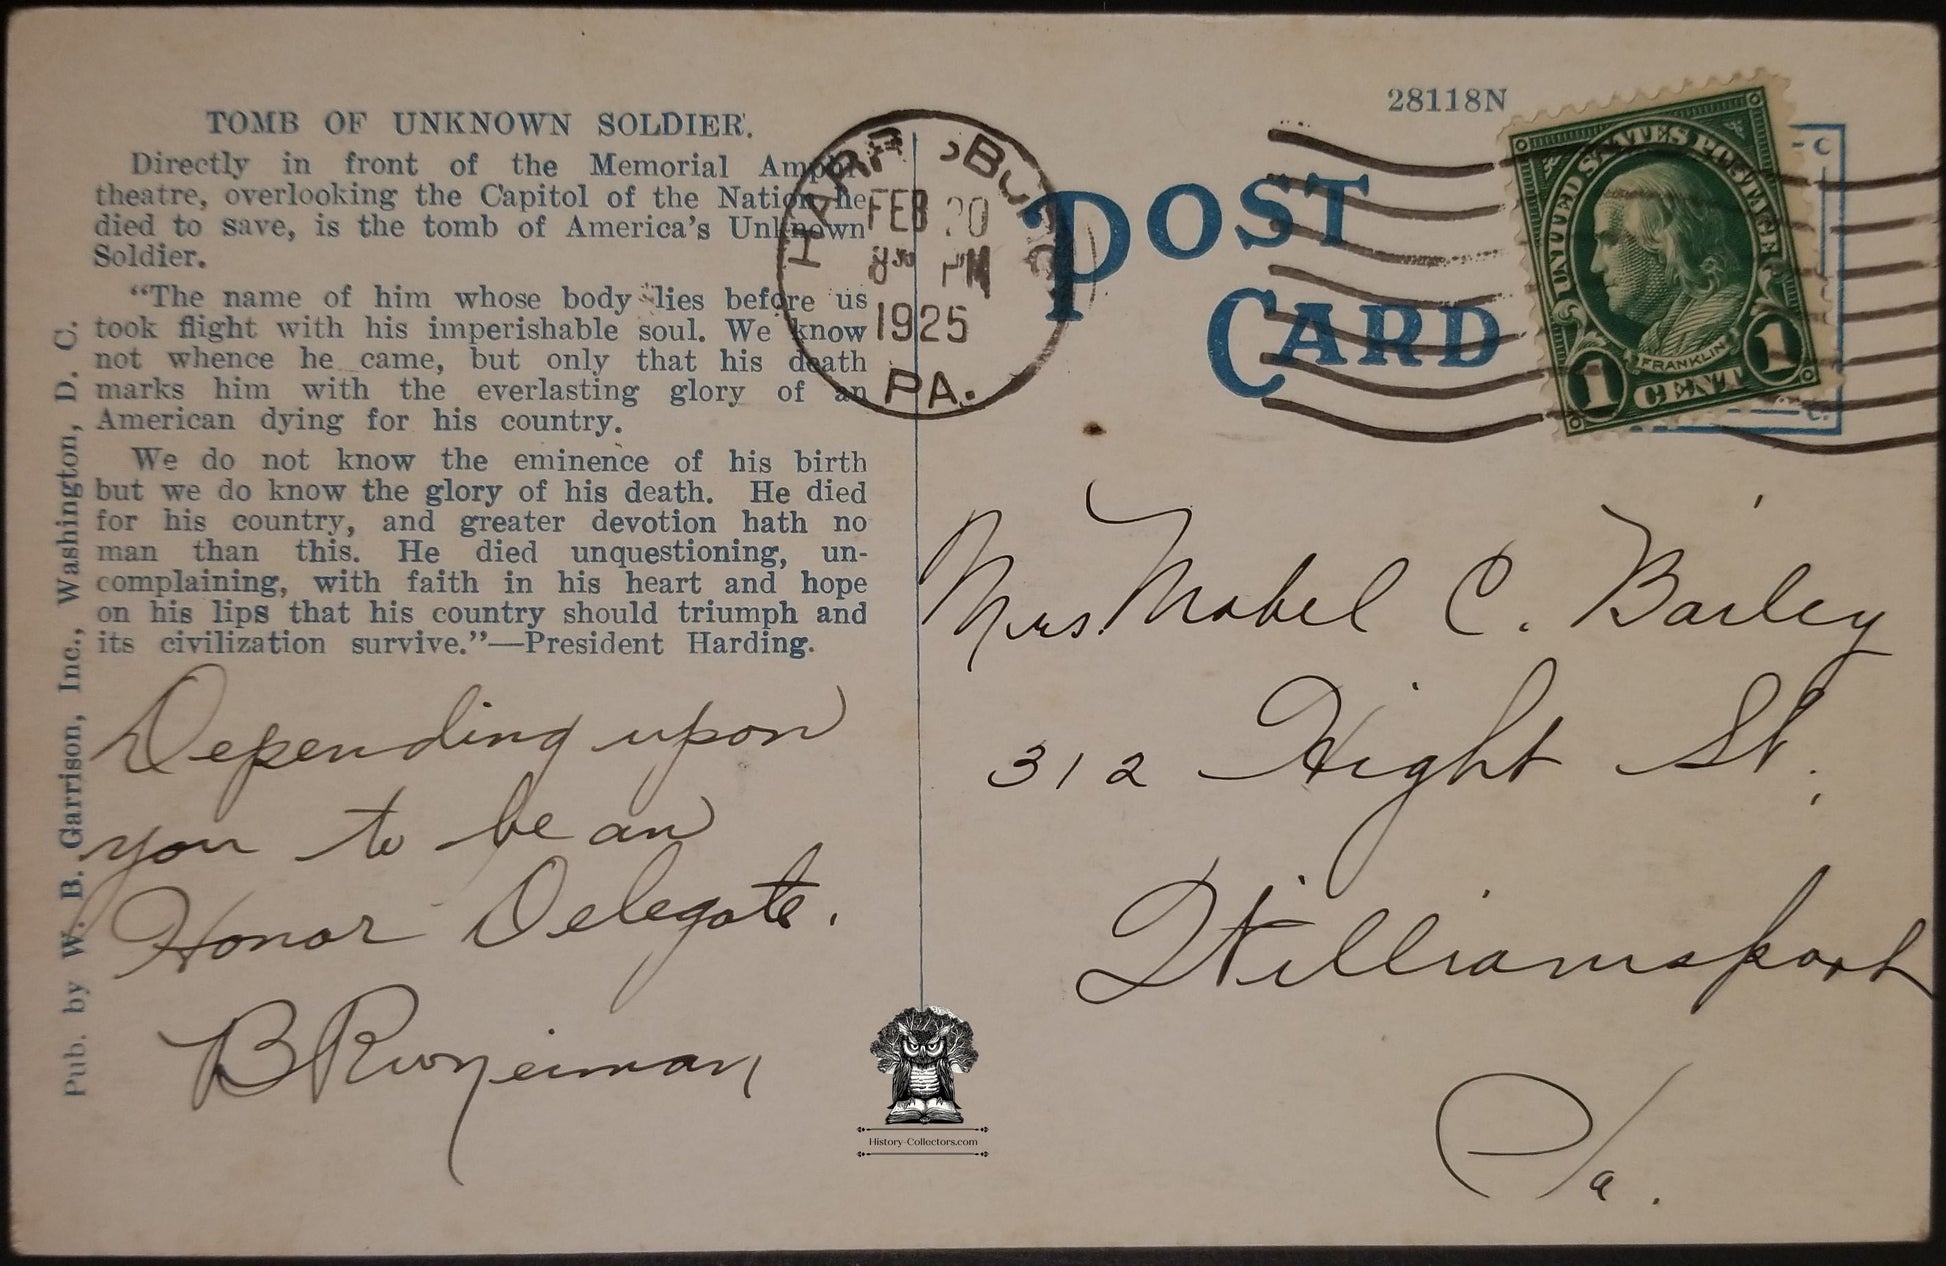 TOMB OF UNKNOWN SOLDIER.
Directly in front of the Memorial Amphi-
theatre, overlooking the Capitol of the Nation he
died to save, is the tomb of America's Unknown
Soldier.
“The name of him whose body lies before us
took flight with his imperishable soul. We know
not whence he came, but only that his death
marks him with the everlasting glory of an
American dying for his country.
We do not know the eminence of his birth
but we do know the glory of his death. He died
for his country, and greater devotion hath no
man than this. He died unquestioning, un-
complaining, with faith in his heart and hope
on his lips that his country should triumph and
its civilization survive.”—President Harding.
Pub. by W. B. Garrison, Inc., Washington, D. C.
Depending upon
you to be an
Honor Delegate.
HARRISBURG
FEB 20
PM
1925
PA.
28118N
POST
CARD
UNITED STATES POSTAGE
FRANKLIN
1 CENT 1
Mrs. Mabel C. Bailey
312 Hight St.
Williamsport
Pa.
History-Collectors.com